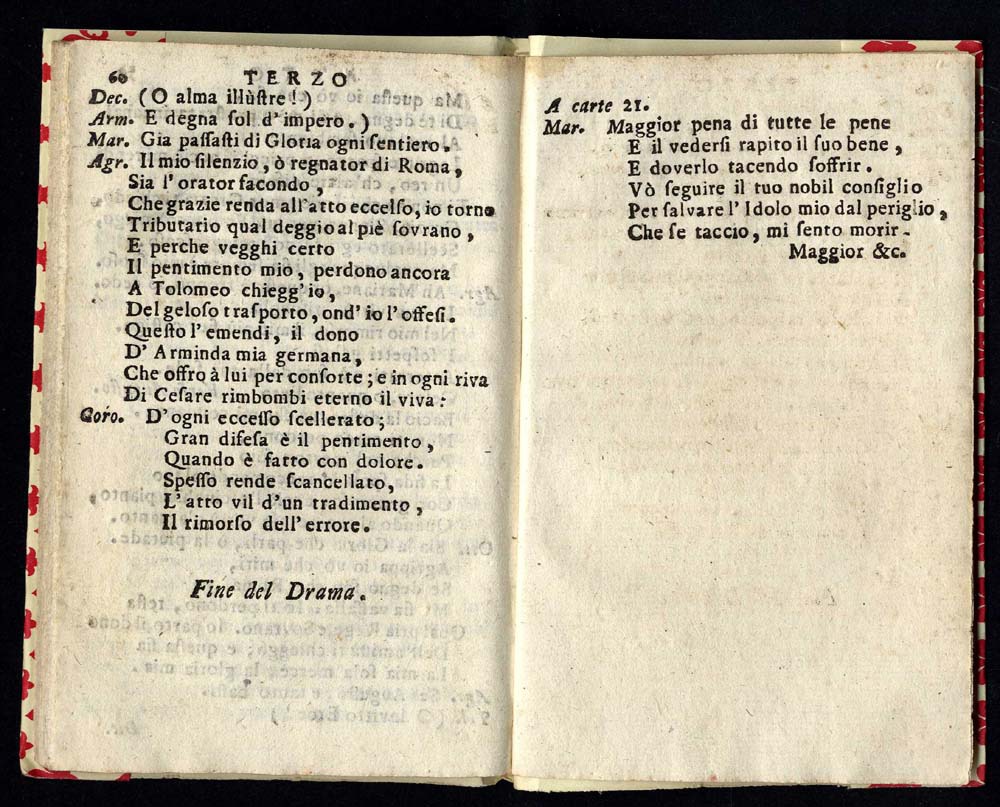 60 TERZO
Dec. (O alma illùſtre!)
Arm. E degna ſol d'impero.)
Mar. Gia paſſaſti di Gloria ogni ſentiero.
Agr. Il mio ſilenzio, ò regnator di Roma,
Sia l'orator facondo,
Che grazie renda all'atto eccelſo, io torno
Tributario qual deggio al piè ſovrano,
E perche vegghi certo
Il pentimento mio, perdono ancora
A Tolomeo chiegg'io,
Del geloſo traſporto, ond' io l'offeſi.
Queſto l'emendi, il dono
D' Arminda mia germana,
Che offro à lui per conſorte; e in ogni riva
Di Ceſare rimbombi eterno il viva:
Coro. D'ogni ecceſſo ſcellerato;
Gran difeſa è il pentimento,
Quando è fatto con dolore.
Speſſo rende ſcancellato,
L'atto vil d'un tradimento,
Il rimorſo dell' errore.
Fine del Drama.
A carte 21.
Mar. Maggior pena di tutte le pene
E il vederſi rapito il ſuo bene,
E doverlo tacendo ſoffrir.
Vò ſeguire il tuo nobil conſiglio
Per ſalvare l'Idolo mio dal periglio,
Che ſe taccio, mi ſento morir.
Maggior &c.